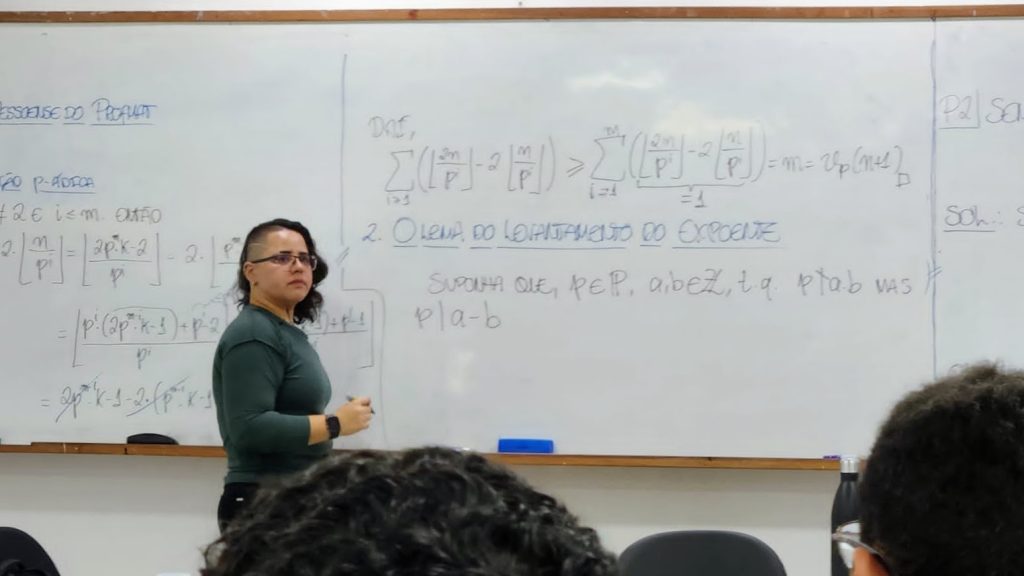 ESSOENSE DO PROFMAT
ÃO P-ÁDICA
≠ 2 E i ≤ m. ENTÃO
2·⌊n/pⁱ⌋ = ⌊(2pᵐ·k-2)/pⁱ⌋ - 2·⌊pᵐ
= ⌊(pⁱ(2pᵐ⁻ⁱk-1)+pⁱ-2
-1)+pⁱ-1
pⁱ
= 2pᵐ⁻ⁱk-1-2·(pᵐ⁻ⁱ·k-1
DAÍ,
∑_{i≥1} (⌊2n/pⁱ⌋ - 2⌊n/pⁱ⌋) ≥ ∑_{i=1}^{m} (⌊2n/pⁱ⌋ - 2⌊n/pⁱ⌋) = m = νₚ(n+1) □
=1
2. O LEMA DO LEVANTAMENTO DO EXPOENTE
SUPONHA QUE, p∈ℙ, a,b∈ℤ, t.q. p∤a·b MAS
p|a-b
P2|
SOL.: